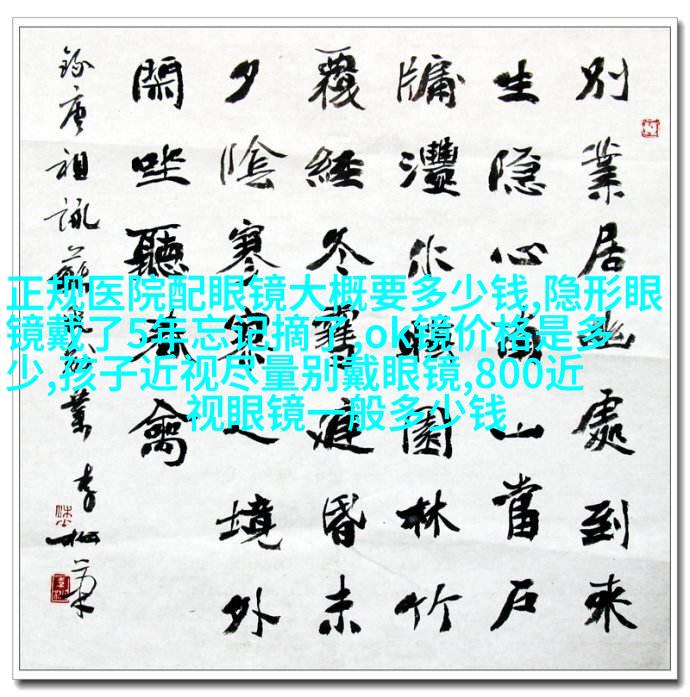 別業居幽處到來
生隐心南山當户
牖灃水映園林竹
覆經冬雪庭昏未
夕陰寥寥人境外
閑坐聽春禽
錄唐祖詠蘇氏別業
正规医院配眼镜大概要多少钱,隐形眼
镜戴了5年忘记摘了,ok镜价格是多
少,孩子近视尽量别戴眼镜,800近
视眼镜一般多少钱